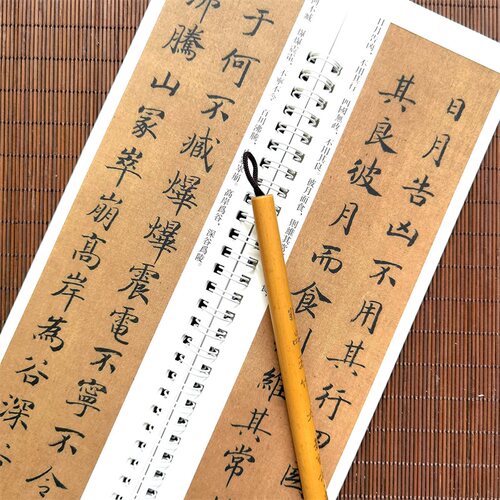 日月告凶不用其行四
其良彼月而食 維其常
日月告凶，不用其行。四國無政，不用其良。彼月而食，則維其常
于何不臧爗爗震電不寧不令
沸騰山冢崒崩高岸為谷深
不臧。爗爗震電，不寧不令。百川沸騰，
崒崩。高岸爲谷，深谷爲陵。